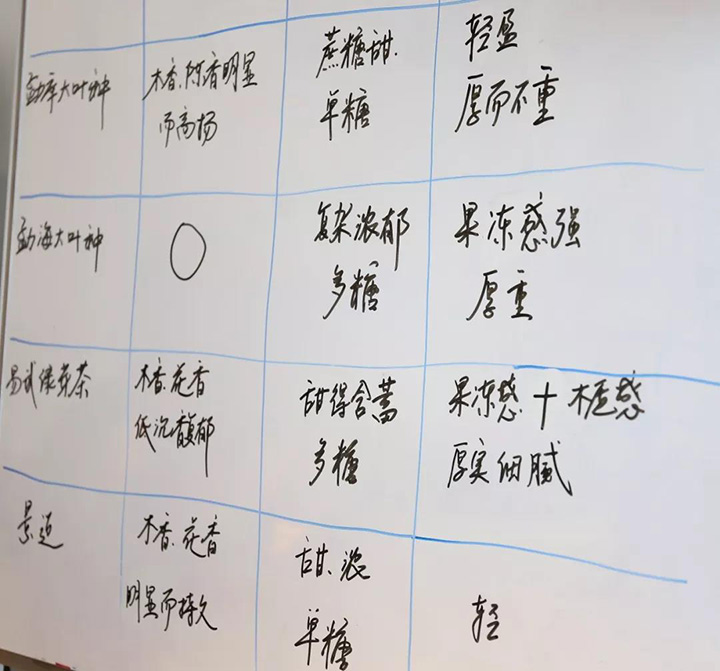 勐库大叶种
木香.陈香明显
而高扬
蔗糖甜.
单糖
轻盈
厚而不重
勐海大叶种
复杂浓郁
多糖
果冻感强
厚重
易武绿芽茶
木香.花香
低沉馥郁
甜得含蓄
多糖
果冻感+木质感
厚实细腻
景迈
木香.花香
明显而持久
甜.浓
单糖
轻